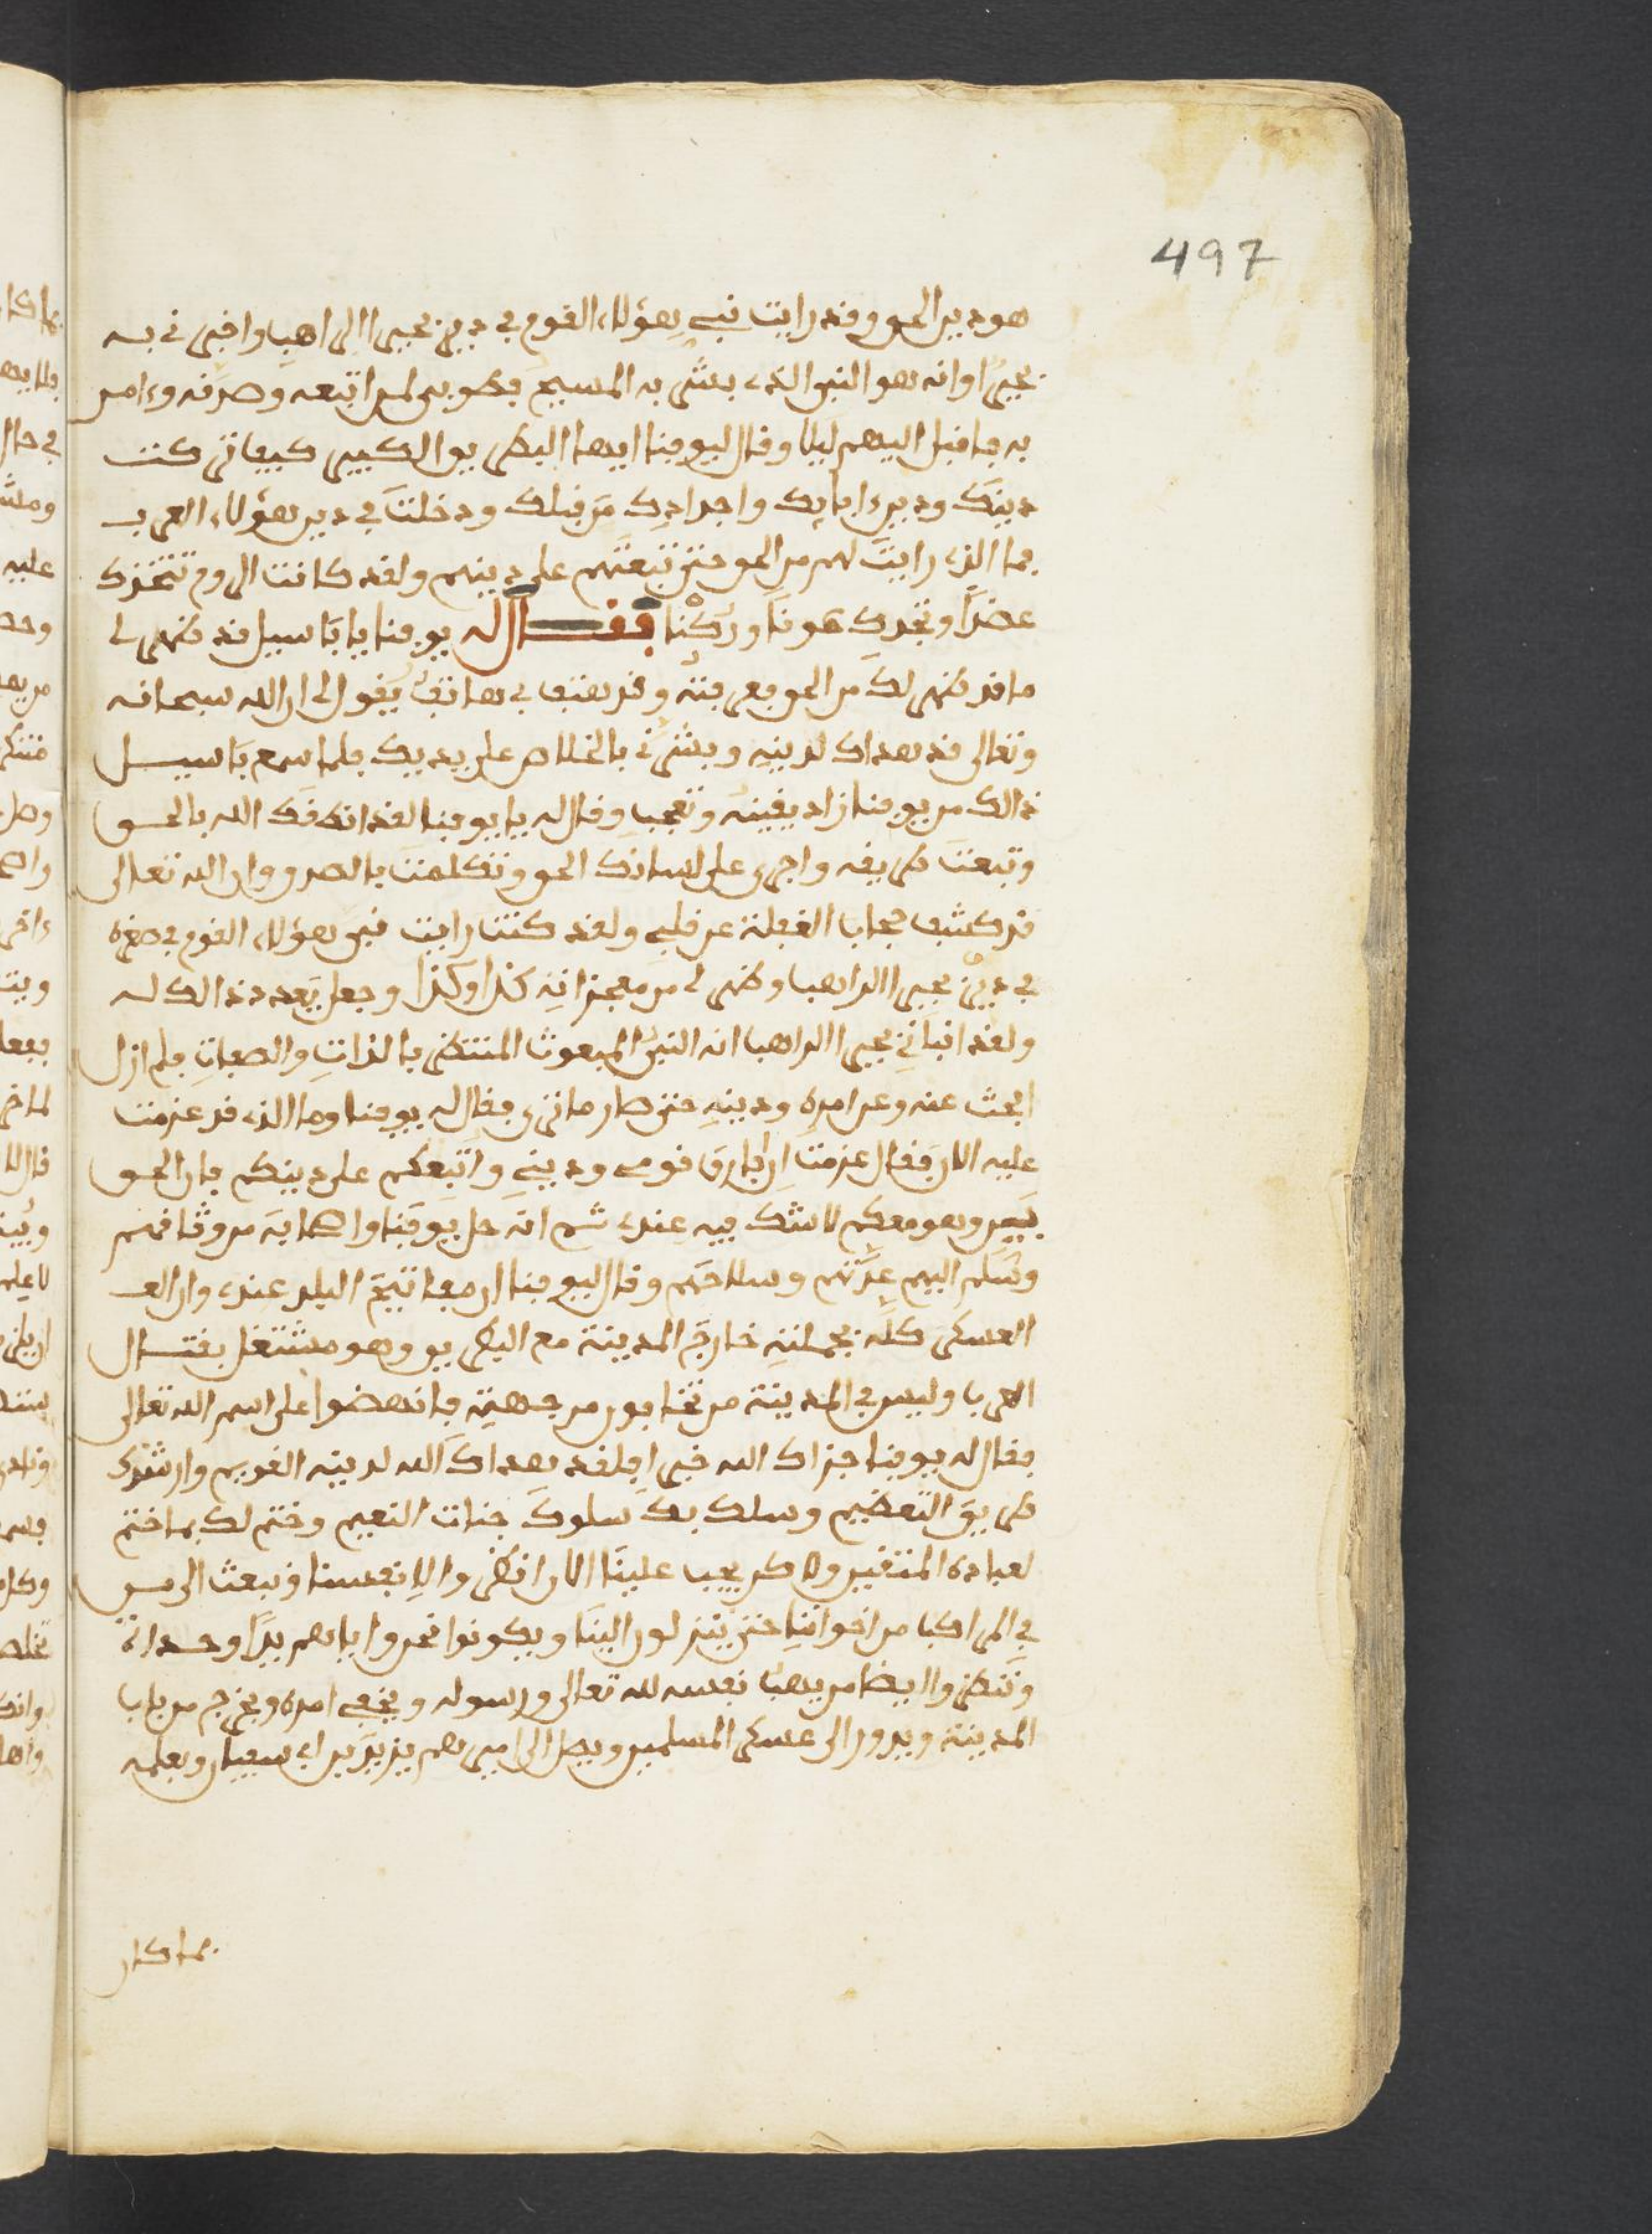 497
هو دين الحق وقد رايت نبي هؤلاء القوم في دير بحيرا الراهب واخبرني به
بحيرا وانه هو النبي الذي بشر به المسيح فطوبى لمن اتبعه وصدقه وءامن
به فاقبل اليهم ليلا وقال ليوقنا ايها البطريق الكبير كيف تركت
دينك ودين ءابايك واجدادك من قبلك ودخلت في دين هؤلاء العرب
فما الذي رايت لهم من الحق حتى تبعتهم على دينهم ولقد كانت الروم تتخذك
عضدا وتجدك عونا وركنا فقال له يوقنا يا باسيل قد ظهر لي
ما قد ظهر لك من الحق فعرفته وقد هتف بي هاتف يقول لي ان الله سبحانه
وتعالى قد هداك لدينه وبشرني بالخلاص على يديك فلما سمع باسيل
ذالك من يوقنا زاد يقينه وتعجب وقال له يا يوقنا لقد انطقك الله بالحق
وتبعت طريقه واجرى على لسانك الحق وتكلمت بالصدق وان الله تعالى
قد كشف حجاب الغفلة عن قلبي ولقد كنت رايت نبي هؤلاء القوم في صغره
في دير بحيرا الراهب وظهر لي من معجزاته كذا وكذا وجعل يعدد ذالك له
ولقد انباني بحيرا الراهب انه النبي المبعوث المنتظر بالذات والصفات فلم ازل
ابحث عنه وعن امره ودينه حتى صار ما ترى فقال له يوقنا وما الذي قد عزمت
عليه الان فقال عزمت ان افارق قومي وديني واتبعكم على دينكم فان الحق
بين وهو معكم لا شك فيه عندي ثم انه حل يوقنا واصحابه من وثاقهم
وسلم اليهم عدتهم وسلاحهم وقال ليوقنا ان مفاتيح البلد عندي وان الع
العسكر كله بجملته خارج المدينة مع البطريق وهو مشتغل بقتال
العرب وليس في المدينة من تخافون من جهته فانهضوا على اسم الله تعالى
فقال له يوقنا جزاك الله خيرا فلقد هداك الله لدينه القويم وارشدك
طريق التعظيم وسلك بك سلوك جنات النعيم وختم لك بما ختم
لعباده المتقين ولاكن يجب علينا الان انظر والانفسنا ونبعث الى من
في المراكب من اخواننا حتى ينزلون الينا ويكونوا نحن واياهم يدا واحدة
وننظروا ايضا من يهب نفسه لله تعالى ورسوله ويخفي امره ويخرج من باب
المدينة ويدور الى عسكر المسلمين ويصل الى اميرهم يزيد بن ابي سفيان ويعلمه
بما كان